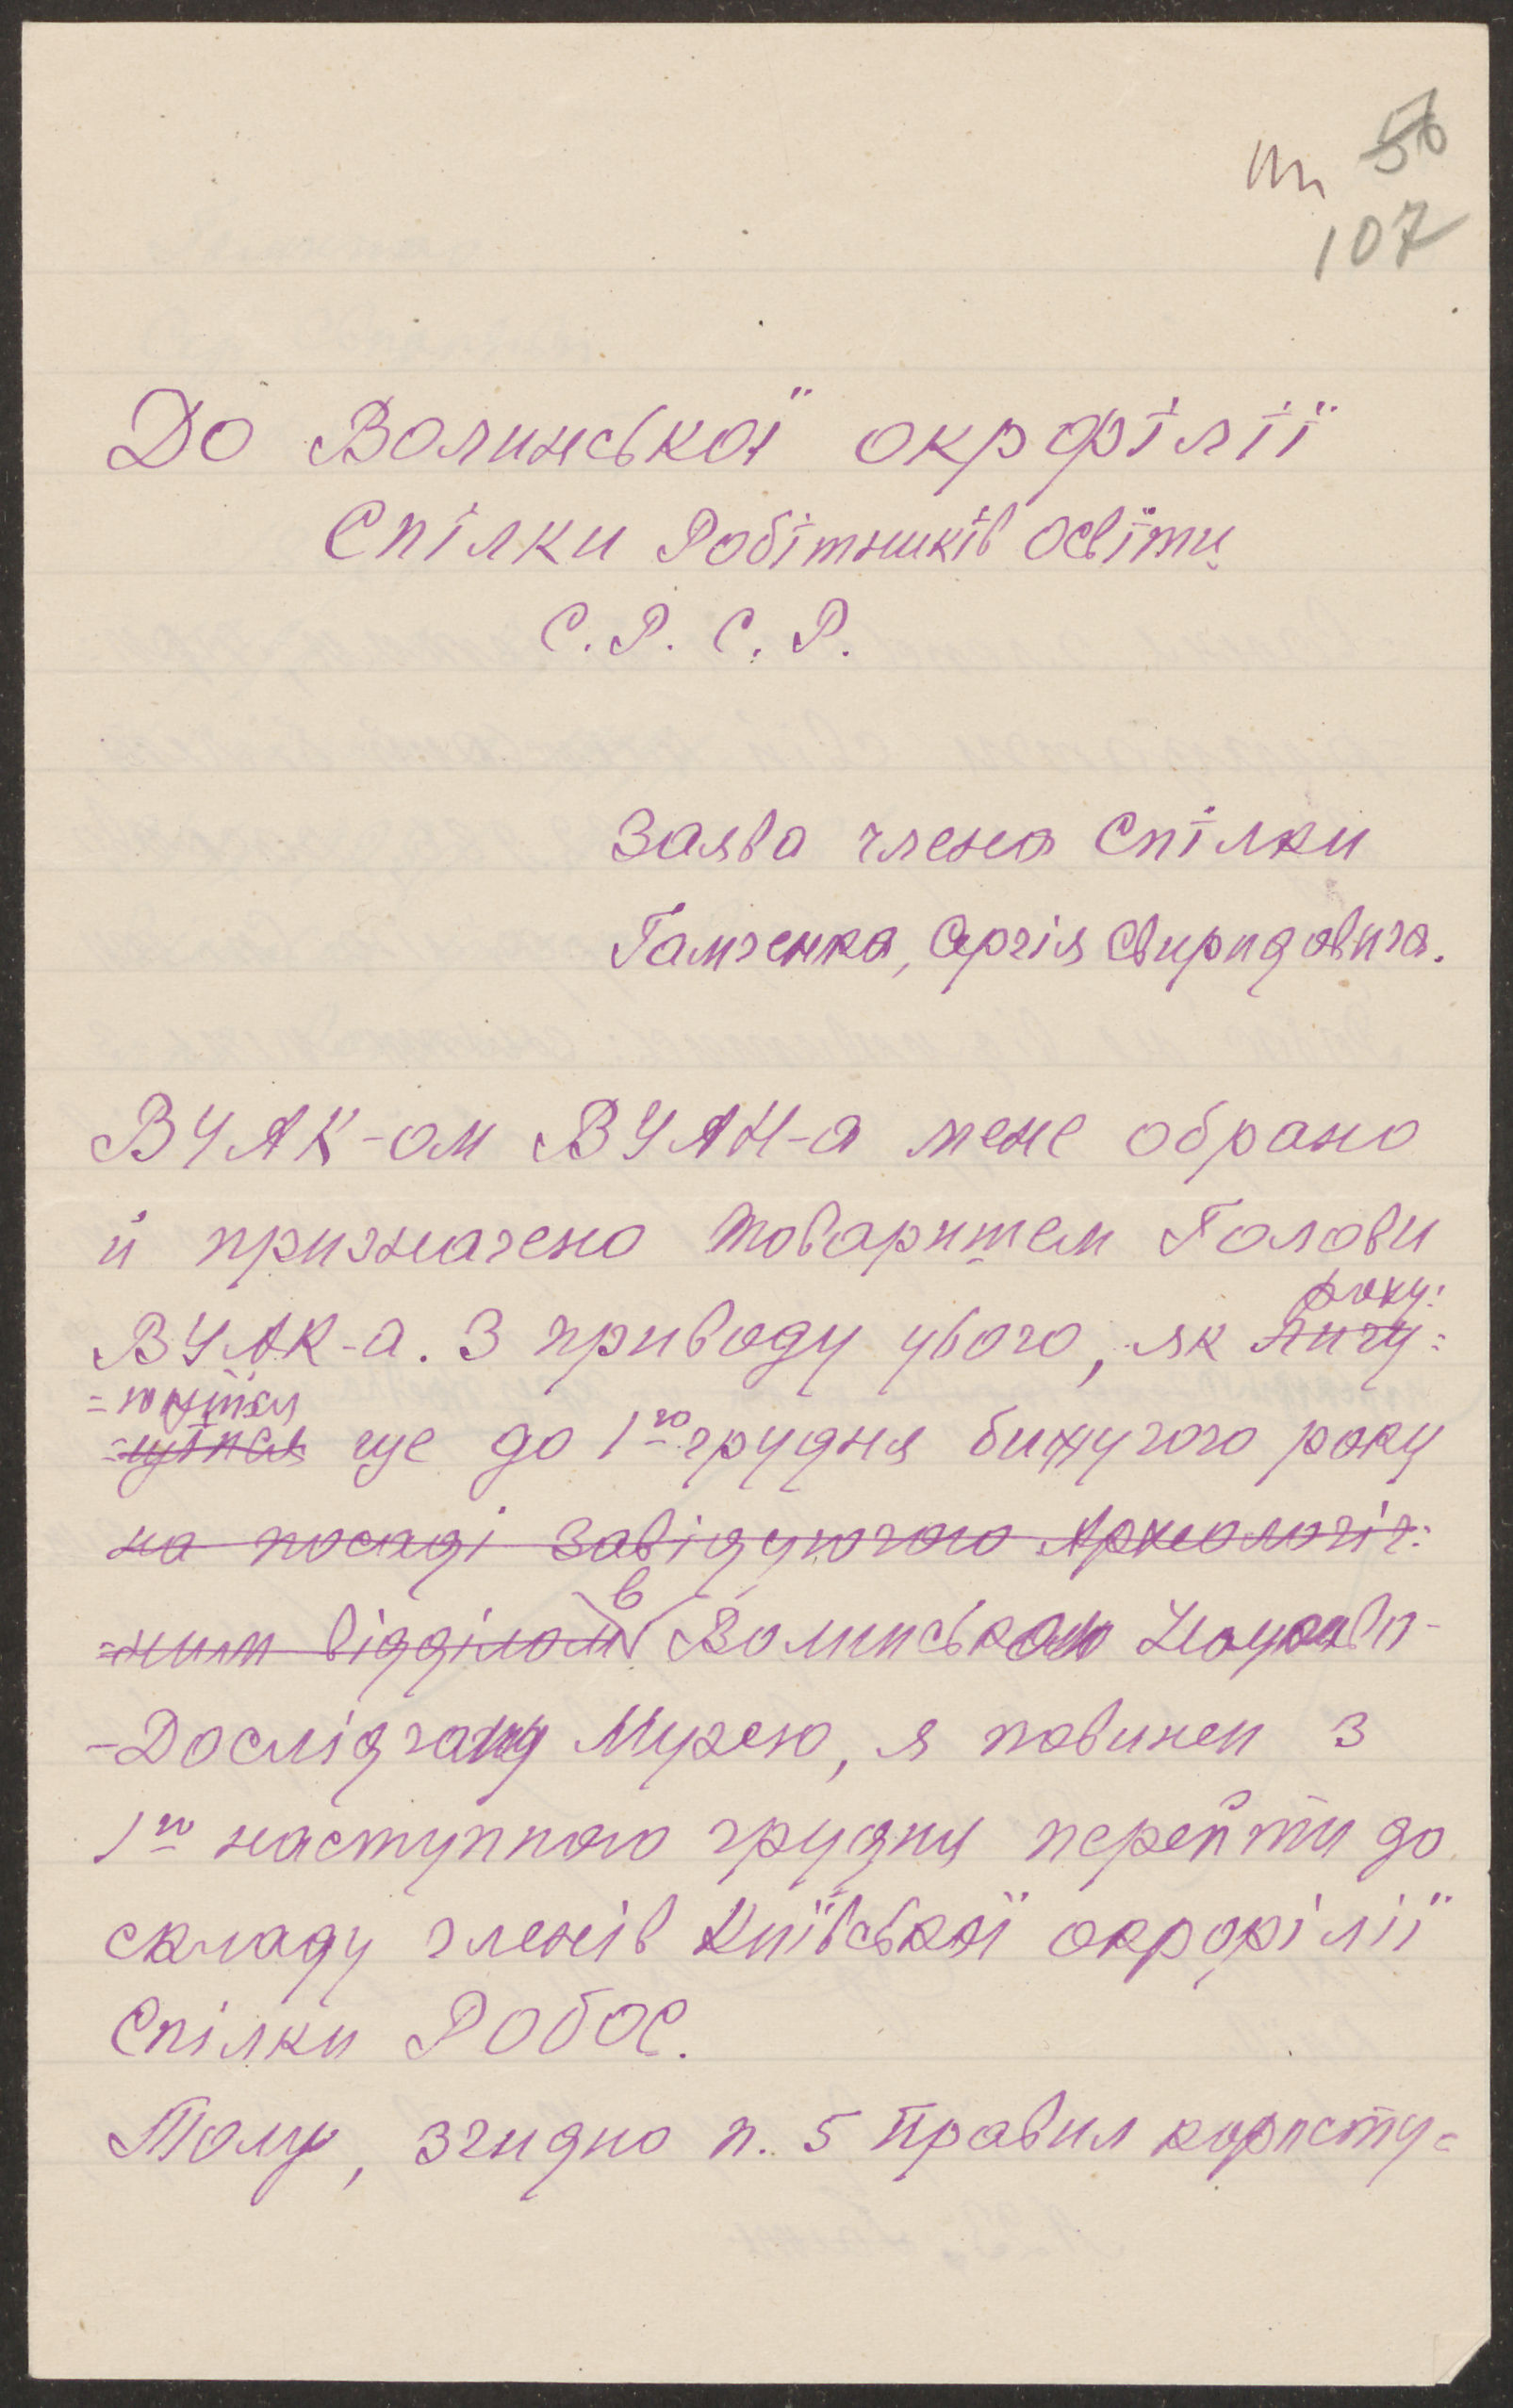 56
107
До Волинської окрфілії
Спілки Робітників Освіти
С. Р. С. Р.
Заява члена Спілки
Гамченка, Сергія Свиридовича.
ВУАК-ом ВУАН-а мене обрано
й призначено Товаришем Голови
ВУАК-а. З приводу цього, як
ще до 1го грудня бижучого року
на посаді Завідуючого Археологіч=
=ним відділом в Волинському Науково-
-Дослідчому Музею, я повинен з
1го наступного грудня перейти до
складу членів Київської окрфілії
Спілки Робос.
Тому, згидно п. 5 Правил користу=